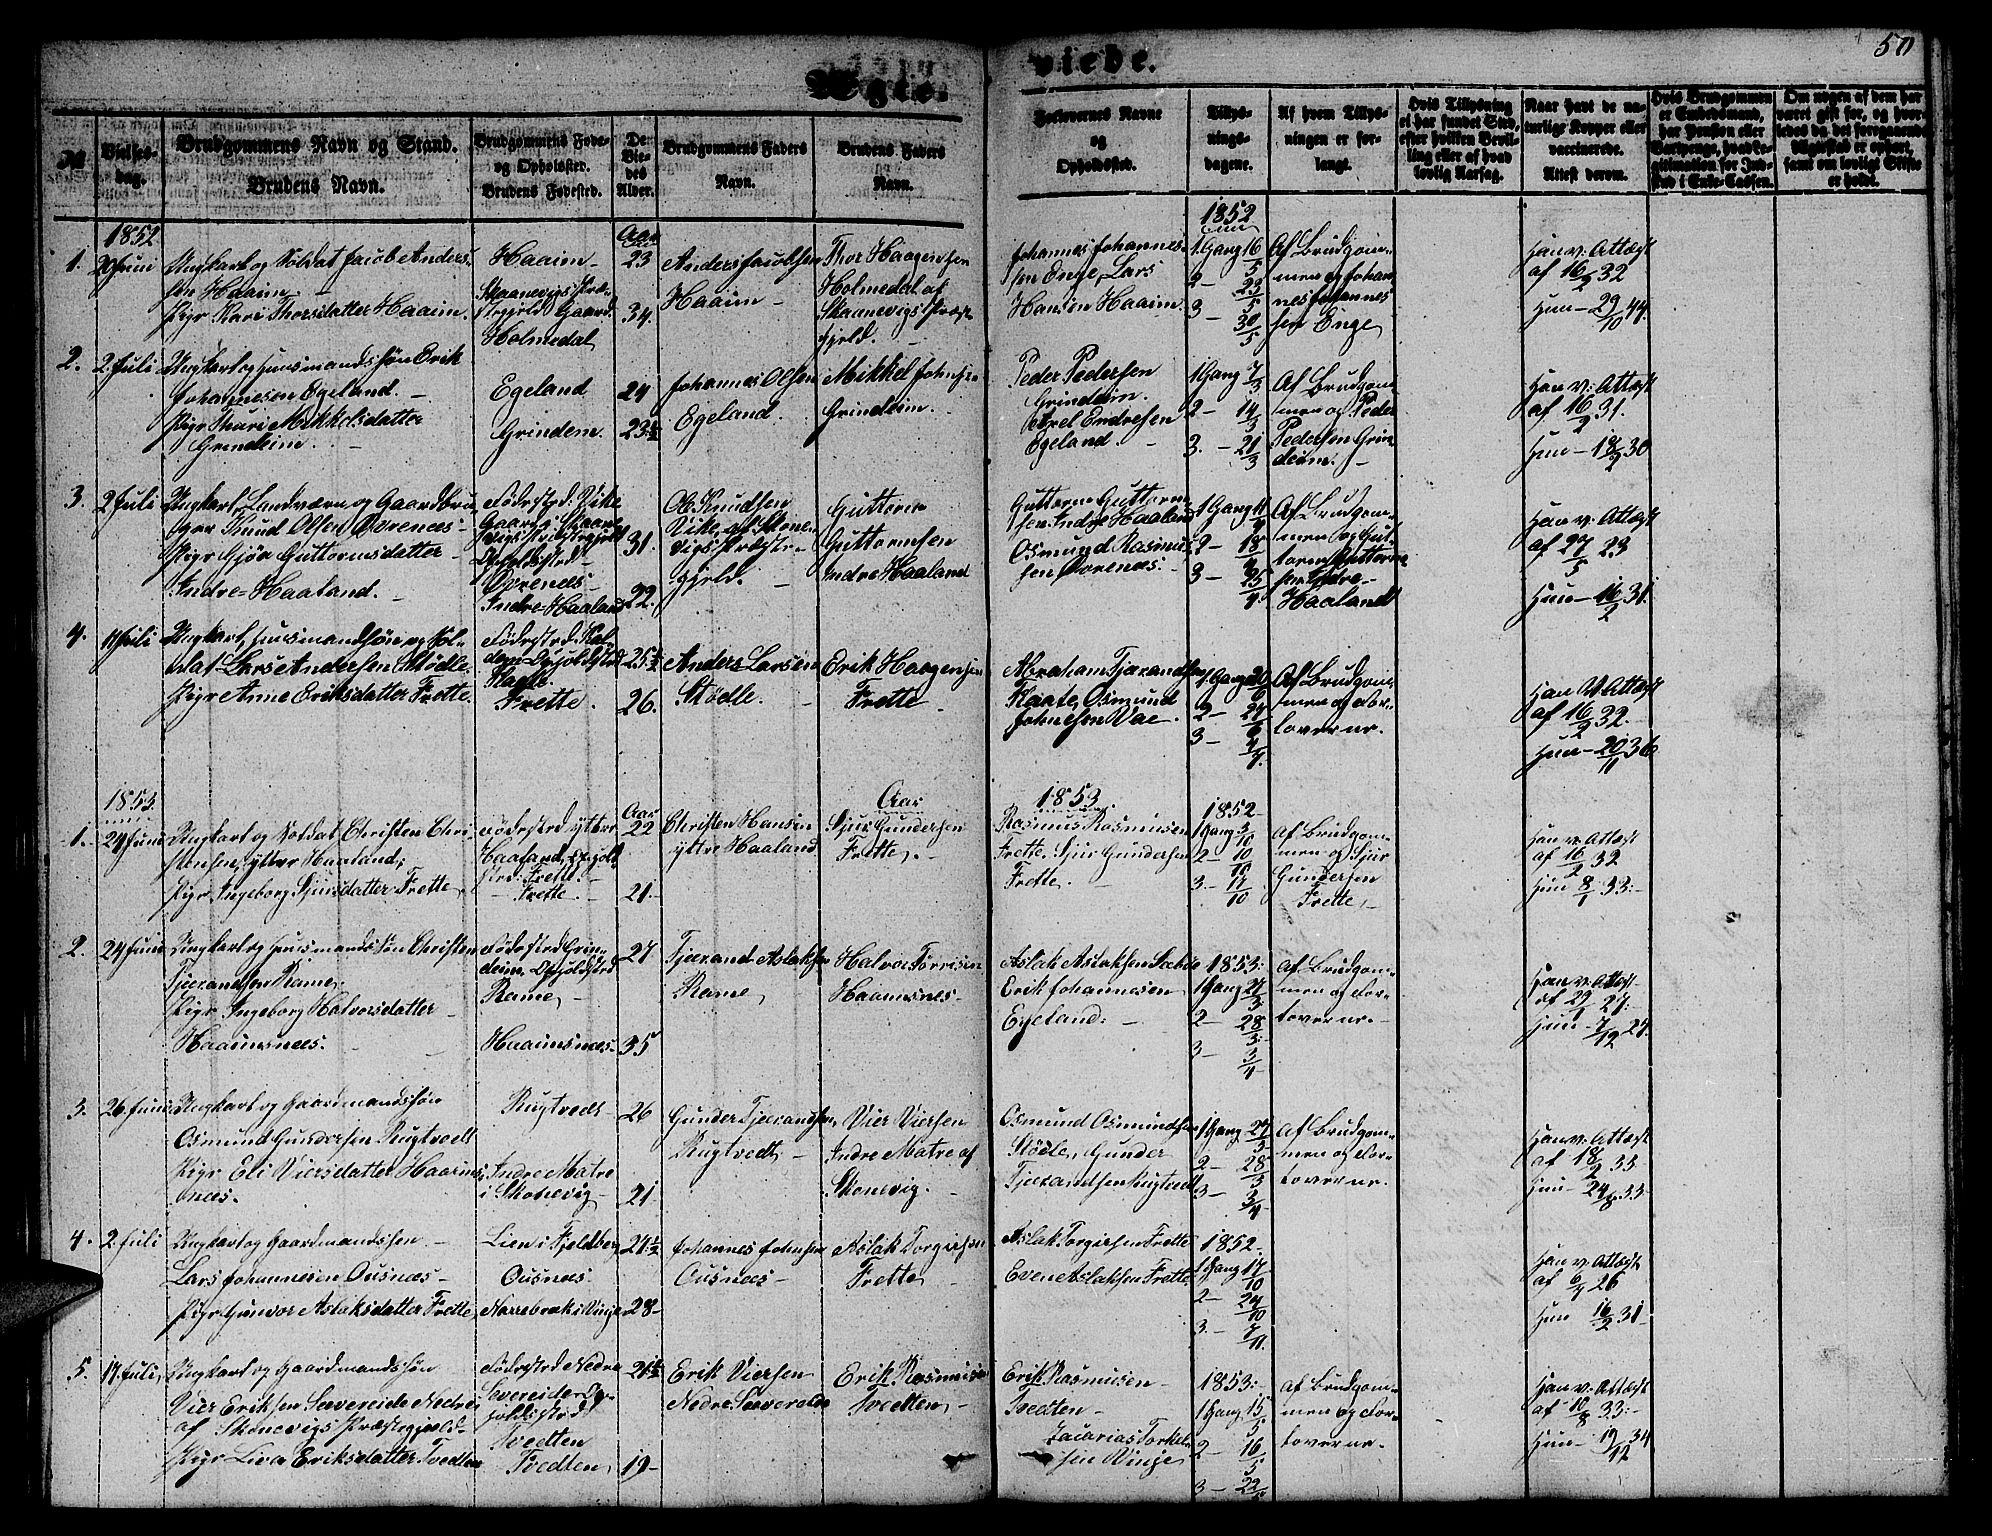 Ægte-
viede.
50
No
Vielses-
dag.
Brudgommens Navn og Stand.
Brudens Navn.
Brudgommens Føde-
og Opholdssted.
Brudens Fødested.
De
Vie-
des
Alder.
Brudgommens Faders
Navn.
Brudens Faders
Navn.
Forlovernes Navne
og
Opholdssted.
Tillys-
nings-
dagene.
Af hvem Tillys-
ningen er for-
langt.
Hvis Tillysning
ei har fundet Sted,
efter hvilken Bevil-
ling eller af hvad
lovlig Aarsag.
Naar havt de na-
turlige Kopper eller
vaccinerede.
Attest derom.
Hvis Brudgommen
er Embedsmand,
har Pension eller
Vartpenge, hvad Le-
gitimation for Ind-
skud i Enke-Cassen.
Om nogen af dem har
været gift før, og hvor-
ledes da det foregaaende
Ægteskab er ophørt,
samt om lovligt Skifte
er holdt.
1852
Aar
1852
1.
20 Juni
Ungkarl og Soldat Jacob Anders-
sen Haaim.
Pige Kari Thorsdatter Haaim.
Haaim
Skaanevigs Præ-
stegjeld Gaard
Holmedal
23
34.
Anders Jacobsen
Haaim
Thor Haagensen
Holmedal af
Skaanevigs Præste
gjeld.
Johannes Johannes-
sen Enge, Lars
Hansen Haaim.
1 Gang 16/5
2 - 23/5
3 - 30/5
Af Brudgom-
men og Johan
nes Johannes
sen Enge
Han v. Attest
af 16/2 32
Hun - 29/10 44.
2.
2 Juli
Ungkarl og Huusmandssøn Erik
Johannesen Egeland.
Pige Thuri Mikkelsdatter
Grindeim.
Egeland
Grindem.
24
23½
Johannes Olsen
Egeland
Mikkel Johnsen
Grindeim.
Peder Pedersen
Grindem.
Axel Endresen
Egeland.
1 Gang 7/3
2 - 14/3
3. - 21/3
Af Brudgom-
men og Peder
Pedersen Grin-
deim.
Han v. Attest
af 16/2 31.
Hun - 18/2 30
3.
2 Juli
Ungkarl, Landværn og Gaardbru
ger Knud Olsen Øvrenæs
Pige Gjøa Guttormsdatter
Indre-Haaland.
Fødested: Vike
Gaard i Skaane
vigs Præstegjeld
Opholdssted
Øvrenæs
Indre-Haaland
31.
22.
Ole Knudsen
Vike af Skone-
vigs Præste-
gjeld.
Guttorm
Guttormsen
Indre Haaland
Guttorm Guttorm-
sen Indre Haaland
Osmund Rasmus
sen Øvrenæs.
2 - 18
3 - 25
Af Brudgom-
men og Gut-
torm Guttorm
sen Indre-
Haaland
Han v. Attest
af 27/5 23
Hun - 16/2 31.
4.
11 Juli
Ungkarl, Huusmandssøn og Sol-
dat Lars Andersen Stødle.
Pige Anne Eriksdatter Frette.
Frette.
25½
26.
Anders Larsen
Stødle.
Erik Haagensen
Frette
Abraham Tjerandsen
Kaate, Osmund
Johnesen Vae.
1 Gang 20/6
2 - 27/6
3 - 4/7
Af Brudgom-
men og For-
loverne.
Han v. Attest
af 16/2 32.
Hun - 20/11 36
1853.
Aar
Aar
1853.
1852
1.
24 Juni
Ungkarl og Soldat Christen Chri
stensen, yttre Haaland;
Pige Ingeborg Sjursdatter Frette
Fødested yttre
Haaland, Ophold
sted: Frette.
Frette.
22
21.
Christen Hansen
yttre Haaland
Sjur Gundersen
Frette.
Rasmus Rasmusen
Frette. Sjur Gundersen
Frette.
1 Gang 3/10
2 - 10/10
3. - 17/10
Af Brudgom-
men og Sjur
Gundersen
Frette
Han v. Attest
af 16/2 32
Hun 8/1 33:
2.
24 Juni
Ungkarl og Huusmandssøn Christen
Tjerandsen Rame,
Pige Ingeborg Halvorsdatter
Haaimsnæs.
Fødested Grin-
deim, Opholdssted
Rame,
Haaimsnæs.
27
35
Tjerand Aslaksen
Rame,
Halvor Torrisen
Haamsnes-
Aslak Aslaksen Sæbøe
Erik Johannesen
Egeland:
1853:
1 Gang 27/3
2 - 28/3
3 - 3/4
Af Brudgom-
men og For-
loverne.
Han v. Attest
Hun - 7/12 27.
3.
26 Juni
Ungkarl og Gaardmandssøn
Osmund Gundersen Rugtvedt
Pige Eli Viersdatter Haaims
næs.
Rugtvedt
Indre Matre
i Skonevig
26
21
Gunder Tjerandsen
Rugtvedt
Vier Viersen
Indre Matre af
Skonevig.
Osmund Osmundsen
Stødle, Gunder
Tjerandsen Rugtvedt
1 Gang 27/3
2 - 28/3
3 - 3/4
Af Brudgom-
men og For-
loverne.
Han v: Attest
af 18/2 35
Hun - 24/8 33
4.
2 Juli
Ungkarl og Gaardmandssøn
Lars Johannesen Ousnæs-
Pige Gunvor Aslaksdatter Frette,
Lien i Fjeldberg
Ousnæs
28-
Johannes Johnsen
Ousnæs
Aslak Torgirsen
Frette
Aslak Torgirsen Frette
Even Aslaksen Frette
1852-
1 Gang 17/10
2 - 24/10
3 - 7/11
Han v. Attest
af 6/7 26
Hun 16/2 31.
5.
17 Juli,
Ungkarl og Gaardmandssøn
Vier Eriksen Sævereide Nedre
af Skonevigs Præstegjeld-
Pige Liva Eriksdatter Tvedten
Fødested Nedre
Sævereide Op-
holdssted
Tvedten
Tvedten
21½
19-
Erik Viersen
Nedre Sævereide
Erik Rasmusen
Tvedten
Erik Rasmusen
Tvedten-
Zacarias Torkel-
sen Vinje
1853:
1 Gang 15/5
2 - 16/5
3 - 22/5
Af Brudgom-
men og For-
loverne.
Han v. Attest
af 10/8 33:
Hun - 34